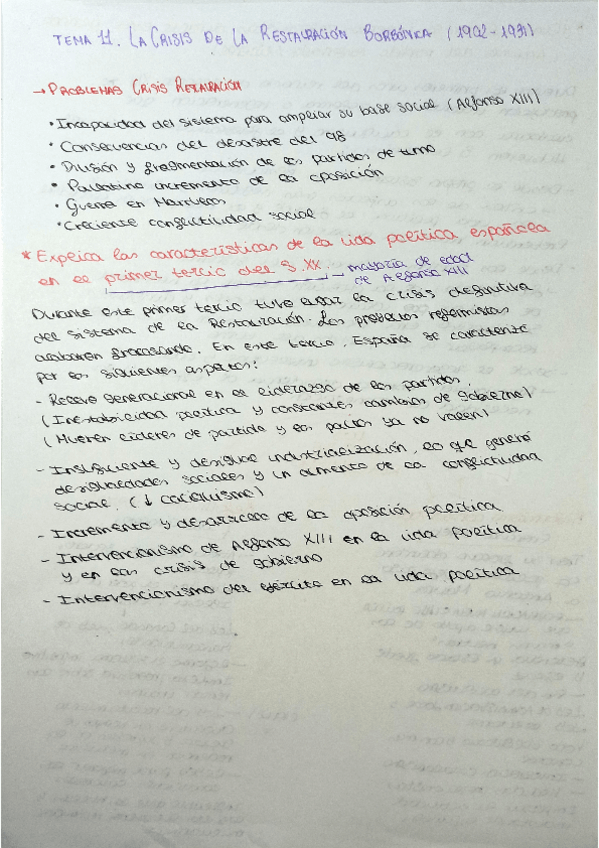 TEMA 11. LA CRISIS DE LA RESTAURACIÓN BORBÓNICA (1902-1931)
→ PROBLEMAS CRISIS RESTAURACIÓN
• Incapacidad del sistema para ampliar su base social (Alfonso XIII)
• Consecuencias del desastre del 98
• División y fragmentación de los partidos de turno
• Paulatino incremento de la oposición
• Guerra en Marruecos
• Creciente conflictividad social
* Explica las características de la vida política española
en el primer tercio del S. XX → mayoría de edad
de Alfonso XIII
Durante este primer tercio tuvo lugar la crisis definitiva
del sistema de la Restauración. Los proyectos reformistas
acabaron fracasando. En este tercio, España se caracterizó
por los siguientes aspectos:
- Relevo generacional en el liderazgo de los partidos.
(Inestabilidad política y constantes cambios de gobierno)
(Mueren líderes de partido y los pactos ya no valen)
- Insuficiente y desigual industrialización, lo que generó
desigualdades sociales y un aumento de la conflictividad
social. (↓ caciquismo)
- Incremento y desarrollo de la oposición política
- Intervencionismo de Alfonso XIII en la vida política
y en las crisis de gobierno
- Intervencionismo del ejército en la vida política